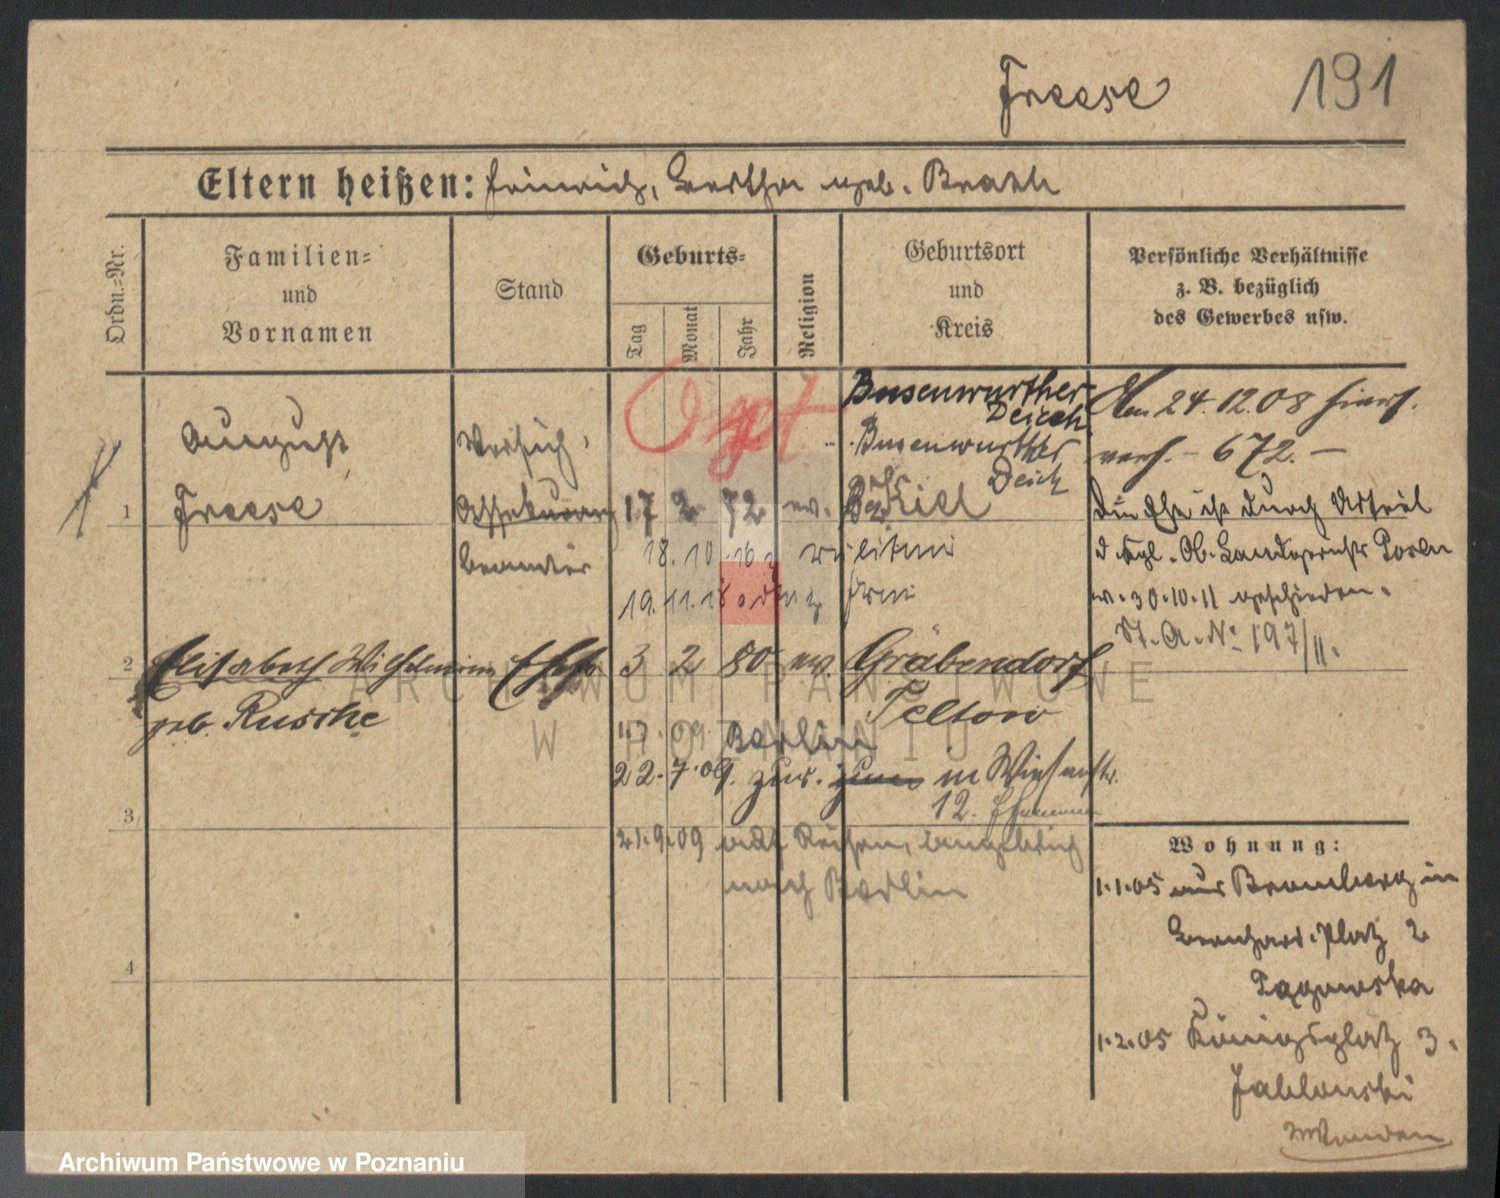 Freese 191
Eltern heißen: Heinrich, Bertha geb. Braak
Ordn.=Nr.
Familien=
und
Vornamen
Stand
Geburts=
Tag
Monat
Jahr
Religion
Geburtsort
und
Kreis
Persönliche Verhältnisse
z. B. bezüglich
des Gewerbes usw.
Opt
1
August
Freese
Versich.
beamter
17 2 72 ev.
Busenwurther
Deich
Busenwurther
Deich
Kiel
18.10.16
19.11.18
Am 24.12.08 hiers.
verh. – 672. –
Die Ehe ist durch Urteil
d. Kgl. Ob. Landgerichts Posen
v. 30.10.11 geschieden.
St. A. No 197/11.
2
Elisabeth Wilhelmine
geb. Ruschke
Ehefr.
3 2 80 ev.
Gräbendorf
Teltow
09 Berlin
22.7.09. zur. in
12.
3
21.9.09 auf Reisen, angeblich
nach Berlin
4
Wohnung:
1.1.05 aus Bromberg in
Bernhard. Platz 2
1.2.05 Königsplatz 3.
Jablonski
Wenden
ARCHIWUM PAŃSTWOWE
W POZNANIU
Archiwum Państwowe w Poznaniu